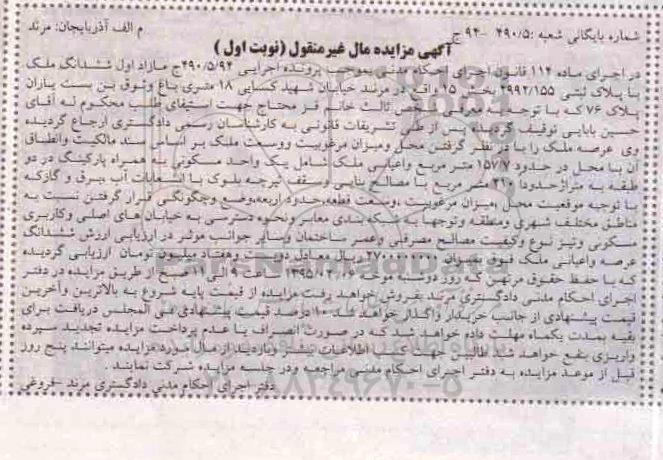 شماره بایگانی شعبه :۴۹۰/۵ -۹۴ ج م الف آذربایجان: مرند
آگهی مزایده مال غیرمنقول (نوبت اول )
در اجرای ماده ۱۱۴ قانون اجرای احکام مدنی بموجب پرونده اجرایی ۴۹۰/۵/۹۴ج مازاد اول ششدانگ ملک
با پلاک ثبتی ۲۹۹۲/۱۵۵ بخش ۱۵ واقع در مرند خیابان شهید کسایی ۱۸ متری باغ وثوق بن بست یاران
پلاک ۷۶ که با توجه به معرفی شخص ثالث خانم فر محتاج جهت استیفای طلب محکوم له آقای
حسین بابایی توقیف گردیده پس از طی تشریفات قانونی به کارشناسان رسمی دادگستری ارجاع گردیده
وی عرصه ملک را با در نظر گرفتن محل ومیزان مرغوبیت ووسعت ملک بر اساس سند مالکیت وانطباق
آن با محل در حدود ۱۵۷/۷ متر مربع واعیانی ملک شامل یک واحد مسکونی به همراه پارکینگ در دو
طبقه به متراژحدودا ۳۱۰ متر مربع با مصالح بنایی وسقف تیرچه بلوک با انشعابات آب ،برق و گازکه
با توجه موقعیت محل ،میزان مرغوبیت ،وسعت قطعه،حدود اربعه،وضع وچگونگی قرار گرفتن نسبت به
مناطق مختلف شهری ومنطقه وتوجها به شبکه بندی معابر ونحوه دسترسی به خیابان های اصلی وکاربری
مسکونی ونیز نوع وکیفیت مصالح مصرفی وعمر ساختمان وسایر جوانب موثر در ارزیابی ارزش ششدانگ
عرصه واعیانی ملک فوق بعنوان ۲۷۰۰۰۰۰۰۰۰ ریال معادل دویست وهفتاد میلیون تومان ارزیابی گردیده
که با حفظ حقوق مرتهن که روز دوشنبه مورخ ۱۳۹۵/۰۳/ ساعت ۹ الی ۱۱ صبح از طریق مزایده در دفتر
اجرای احکام مدنی دادگستری مرند بفروش خواهد رفت مزایده از قیمت پایه شروع به بالاترین وآخرین
قیمت پیشنهادی از جانب خریدار واگذار خواهد شد ۱۰ درصد قیمت پیشنهادی فی المجلس دریافت برای
بقیه بمدت یکماه مهلت داده خواهد شد که در صورت انصراف یا عدم پرداخت مزایده تجدید سپرده
واریزی بنفع خواهد شد طالبین جهت کسب اطلاعات بیشتر وبازدید از مال مورد مزایده میتوانند پنج روز
قبل از موعد مزایده به دفتر اجرای احکام مدنی مراجعه ودر جلسه مزایده شرکت نمایند .
دفتر اجرای احکام مدنی دادگستری مرند -فروغی